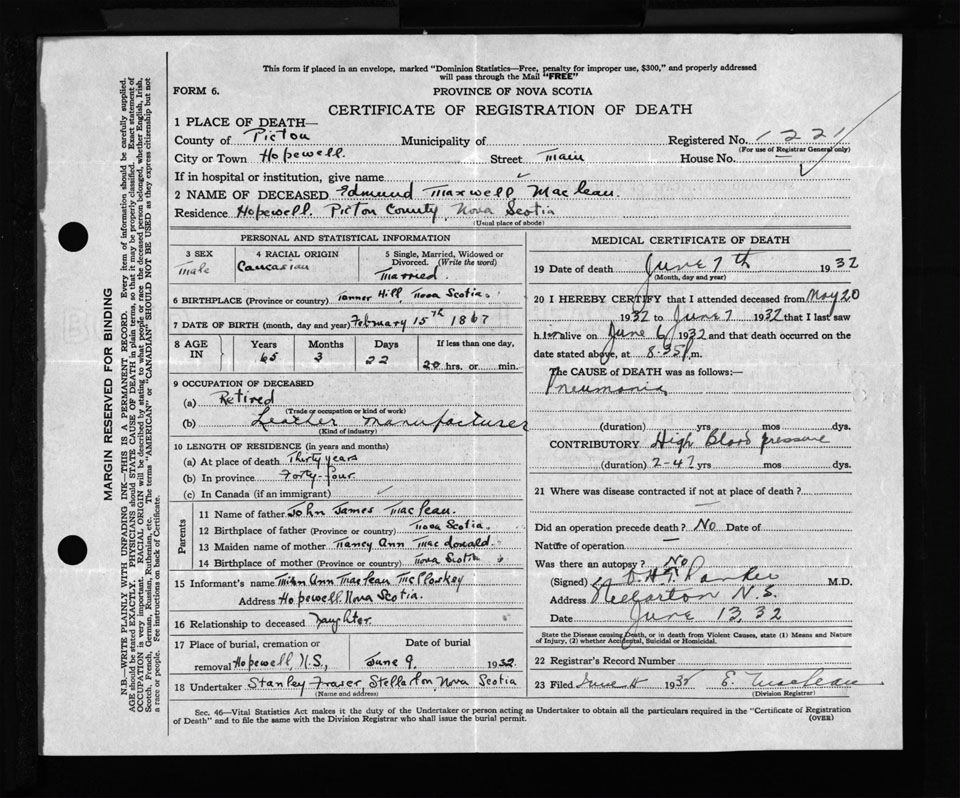 This form if placed in an envelope, marked "Dominion Statistics—Free, penalty for improper use, $300," and properly addressed
will pass through the Mail "FREE"
FORM 6.
PROVINCE OF NOVA SCOTIA
CERTIFICATE OF REGISTRATION OF DEATH
1 PLACE OF DEATH—
County of Pictou Municipality of Registered No. 221
(For use of Registrar General only)
City or Town Hopewell. Street Main House No. —
If in hospital or institution, give name
2 NAME OF DECEASED Edmund Maxwell MacLean.
Residence Hopewell. Pictou County, Nova Scotia
(Usual place of abode)
PERSONAL AND STATISTICAL INFORMATION
3 SEX 4 RACIAL ORIGIN 5 Single, Married, Widowed or
Divorced. (Write the word)
Male Caucasian Married.
6 BIRTHPLACE (Province or country) Tanner Hill, Nova Scotia.
7 DATE OF BIRTH (month, day and year) February 15th 1867
8 AGE IN Years Months Days If less than one day,
65 3 22 20 hrs. or min.
9 OCCUPATION OF DECEASED
(a) Retired
(Trade or occupation or kind of work)
(b) Leather Manufacturer
(Kind of industry)
10 LENGTH OF RESIDENCE (in years and months)
(a) At place of death Thirty years
(b) In province Forty-four
(c) In Canada (if an immigrant)
Parents
11 Name of father John James MacLean.
12 Birthplace of father (Province or country) Nova Scotia.
13 Maiden name of mother Nancy Ann MacDonald.
14 Birthplace of mother (Province or country) Nova Scotia
15 Informant's name Ann MacLean McCloskey
Address Hopewell, Nova Scotia.
16 Relationship to deceased Daughter.
17 Place of burial, cremation or Date of burial
removal Hopewell, N.S., June 9. 1932.
18 Undertaker Stanley Fraser Stellarton, Nova Scotia
(Name and address)
MEDICAL CERTIFICATE OF DEATH
19 Date of death June 7th 1932
(Month, day and year)
20 I HEREBY CERTIFY that I attended deceased from May 20
1932 to June 7 1932 that I last saw
h.im alive on June 6 1932 and that death occurred on the
date stated above, at 8.35 p.m.
The CAUSE of DEATH was as follows:—
Pneumonia
(duration) yrs mos dys.
CONTRIBUTORY High Blood pressure
(duration) 2-4? yrs mos dys.
21 Where was disease contracted if not at place of death?
—
Did an operation precede death? No Date of
Nature of operation —
Was there an autopsy? No
(Signed) Parker M.D.
Address Stellarton N.S.
Date June 13, 32
State the Disease causing Death, or in death from Violent Causes, state (1) Means and Nature
of Injury, (2) whether Accidental, Suicidal or Homicidal.
22 Registrar's Record Number
23 Filed June 1932 E. MacLean
(Division Registrar)
Sec. 46—Vital Statistics Act makes it the duty of the Undertaker or person acting as Undertaker to obtain all the particulars required in the "Certificate of Registration
of Death" and to file the same with the Division Registrar who shall issue the burial permit. (OVER)
MARGIN RESERVED FOR BINDING
N.B.—WRITE PLAINLY WITH UNFADING INK—THIS IS A PERMANENT RECORD. Every item of information should be carefully supplied.
AGE should be stated EXACTLY. PHYSICIANS should STATE CAUSE OF DEATH in plain terms, so that it may be properly classified. Exact statement of
OCCUPATION is very important. RACIAL ORIGIN will be described by stating to what people or race the deceased person belonged, whether English, Irish,
Scotch, French, German, Russian, Ruthenian, etc. The terms "AMERICAN" or "CANADIAN" SHOULD NOT BE USED as they express citizenship but not
a race or people. See instructions on back of Certificate.